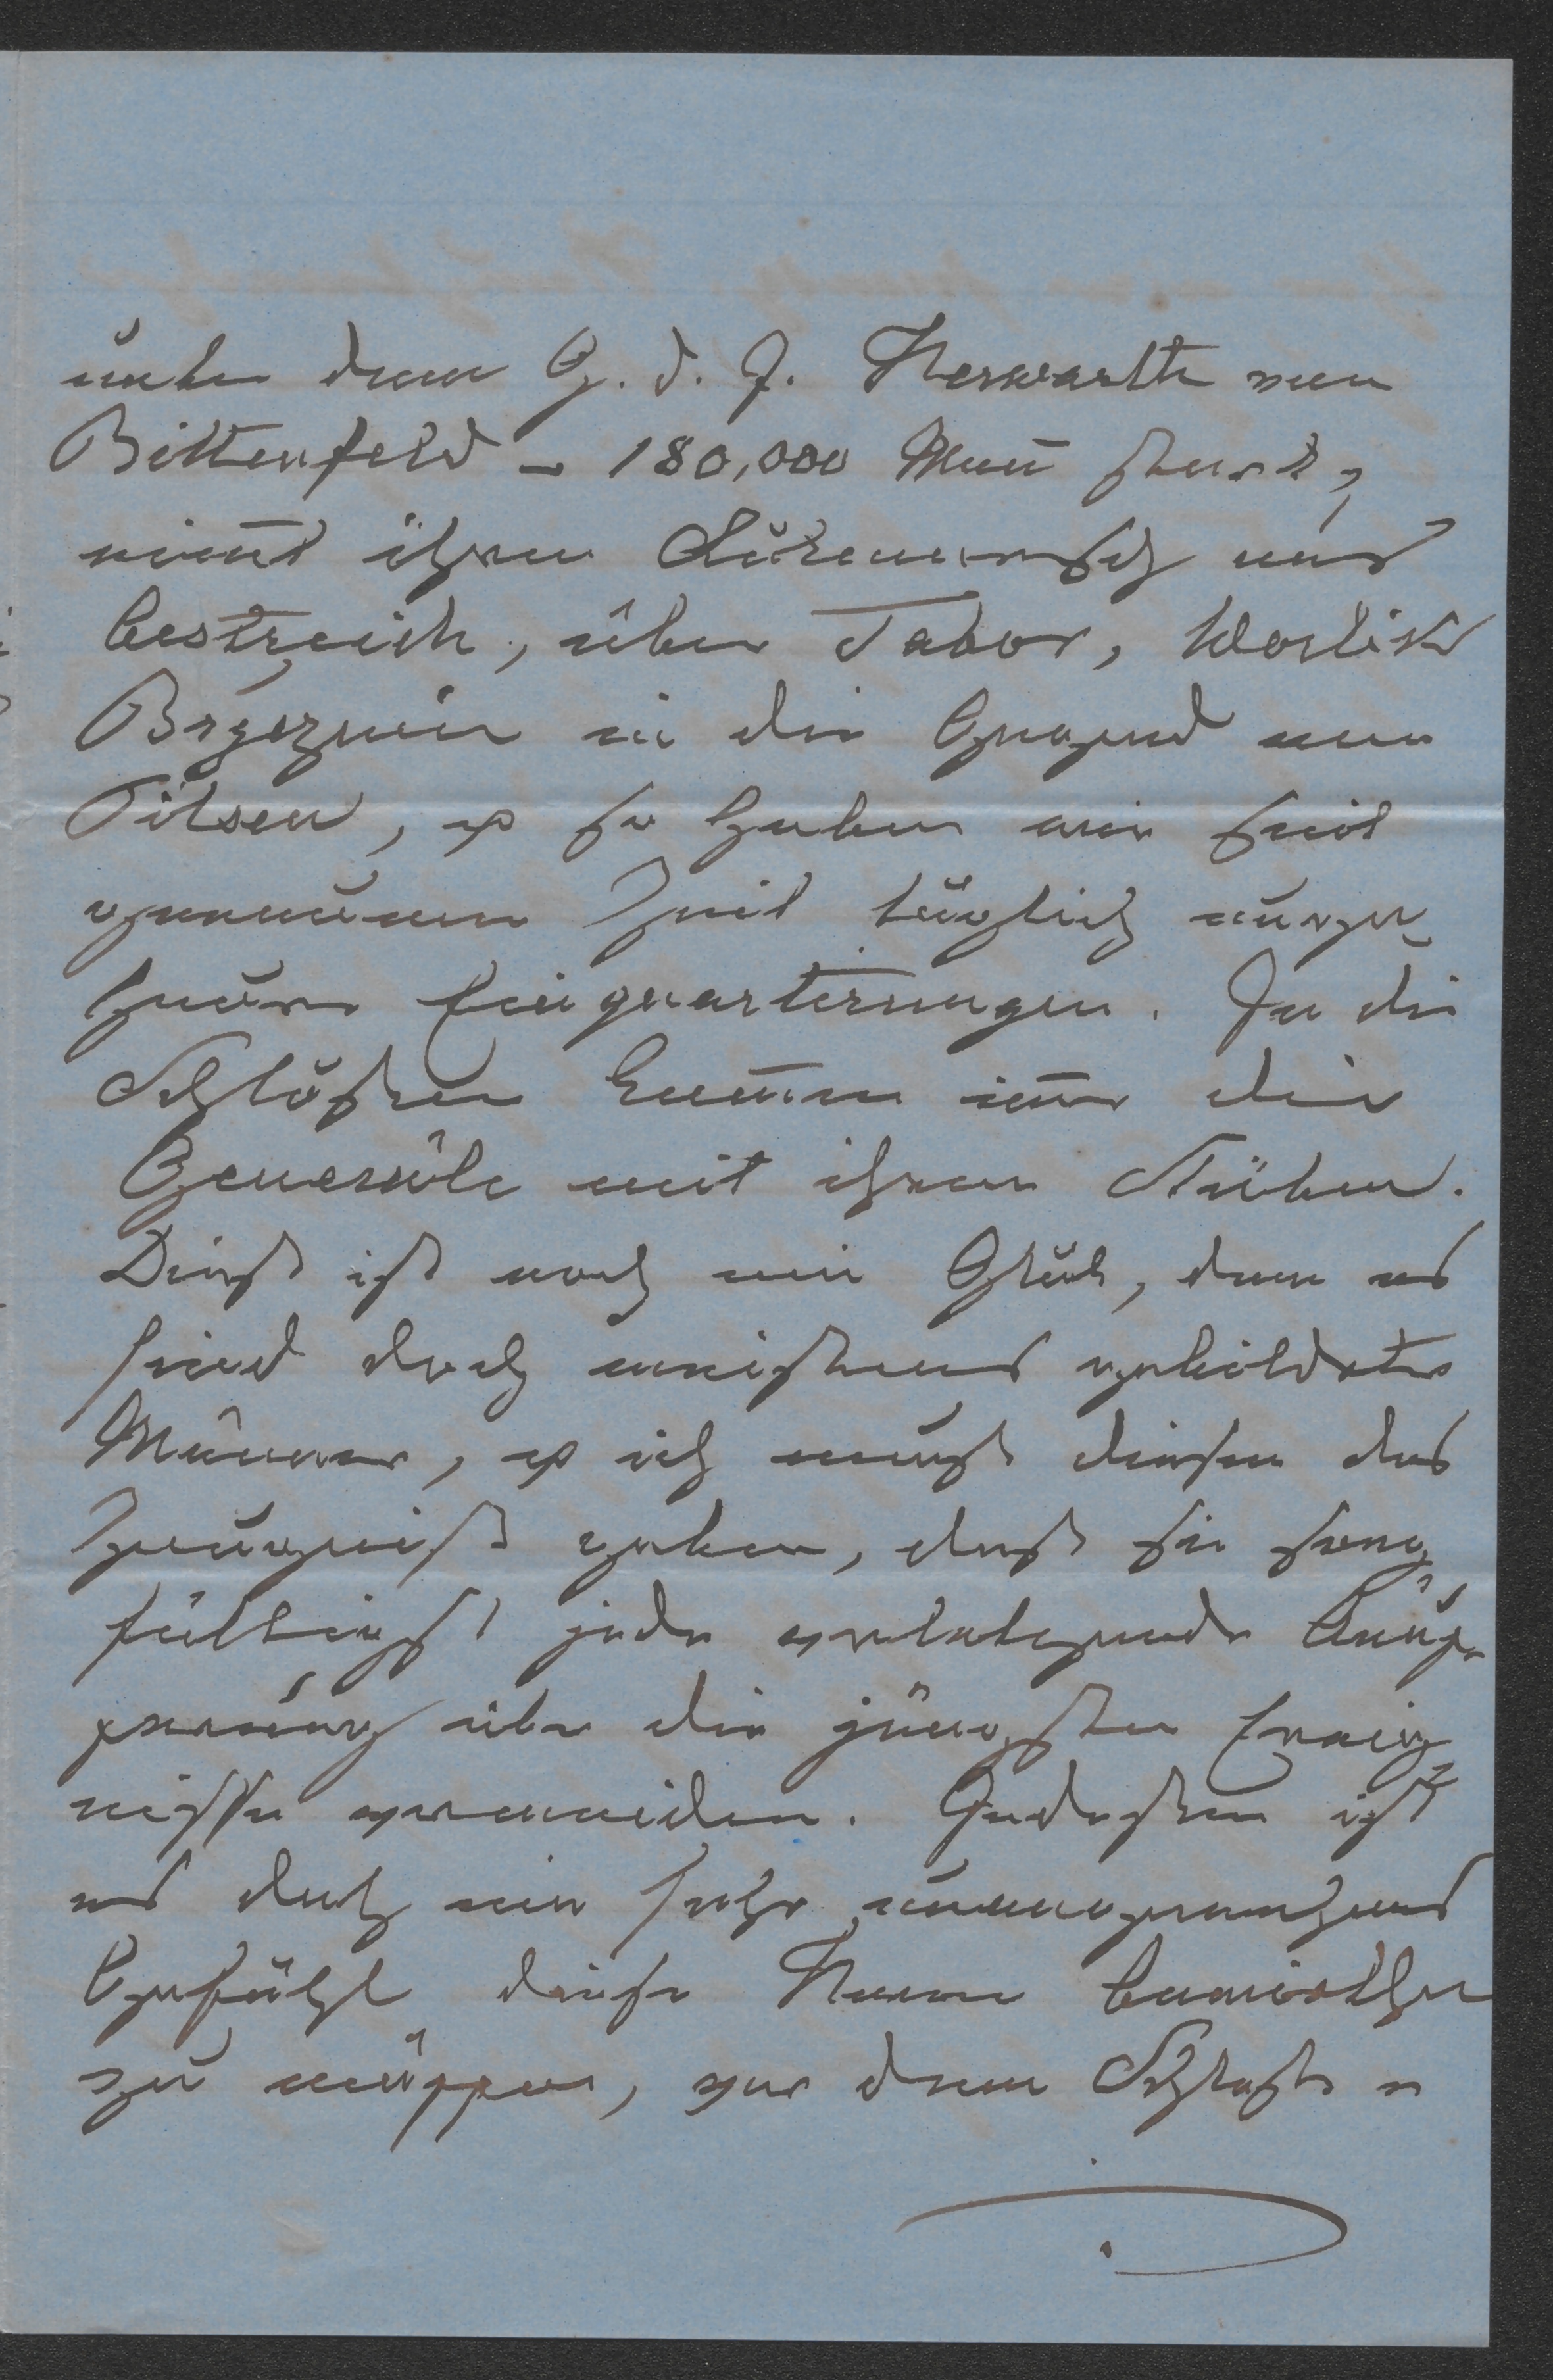 unter dem G. d. I. Herwarth von
Bittenfeld – 180,000 Mañ stark,
nim̄t ihren Rükmarsch aus
Oestreich, über Tabor, Worlik
Brzeznic in die Gegend von
Pilsen, u so haben wir seit
geraumer Zeit täglich unge-
heure Einquartierungen. In die
Schlößer kom̄en im̄er die
Generäle mit ihren Stäben.
Dieß ist noch ein Glük, denn es
sind doch meistens gebildete
Männer, u ich muß diesen das
Zeugniß geben, daß sie sorg-
fältigst jede verletzende Äuße-
rung über die jüngsten Ereig-
nisse vermeiden. Indeßen ist
es doch ein sehr unangenehmes
Gefühl diese Herren bewirthen
zu müssen, vor dem Schloße